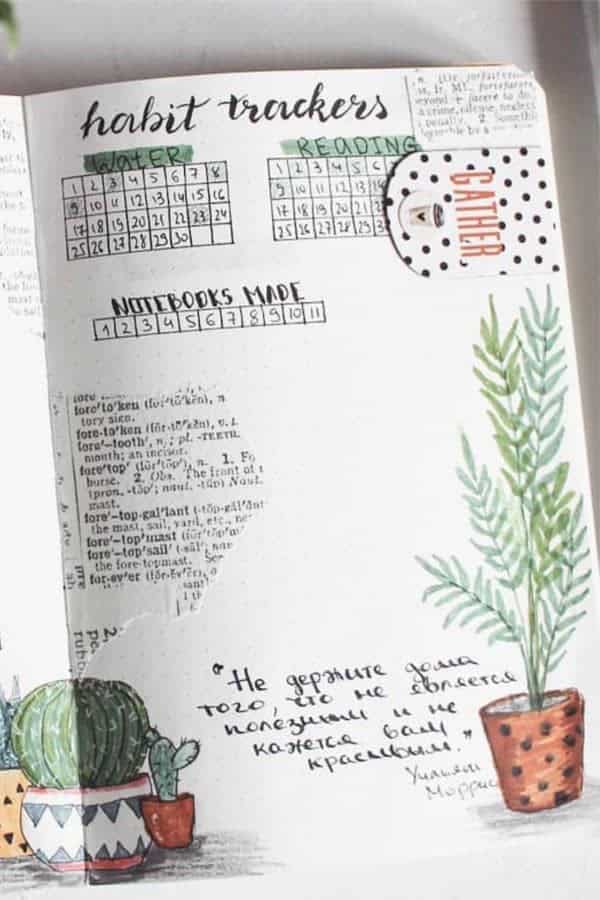 habit trackers
WATER
1 2 3 4 5 6 7 8
9 10 11 12 13 14 15 16
17 18 19 20 21 22 23 24
25 26 27 28 29 30
READING
1 2 3 4 5 6
9 10 11 12 13
17 18 19 20 21 22
25 26 27 28 29 3
GATHER
NOTEBOOKS MADE
1 2 3 4 5 6 7 8 9 10 11
fore'to'ken (för'tō'kĕn), n.
tory sign.
fore-to'ken (fōr-tō'kĕn), v. t.
fore'-tooth', n.; pl. -TEETH.
mouth; an incisor.
fore'top' (fōr'tŏp'), n. 1.
horse. 2. Obs. The front of
(pron. -tŏp'; naut. -tŭp) Naut.
mast.
fore'-top-gal'lant
the mast, sail, yard, etc.,
fore'-top'mast
fore'-top'sail'
the fore-topmast.
for-ev'er (fŏr-ĕv'ẽr),
"Не держите дома
того, что не является
полезным и не
кажется вам
красивым."
Уильям
Моррис